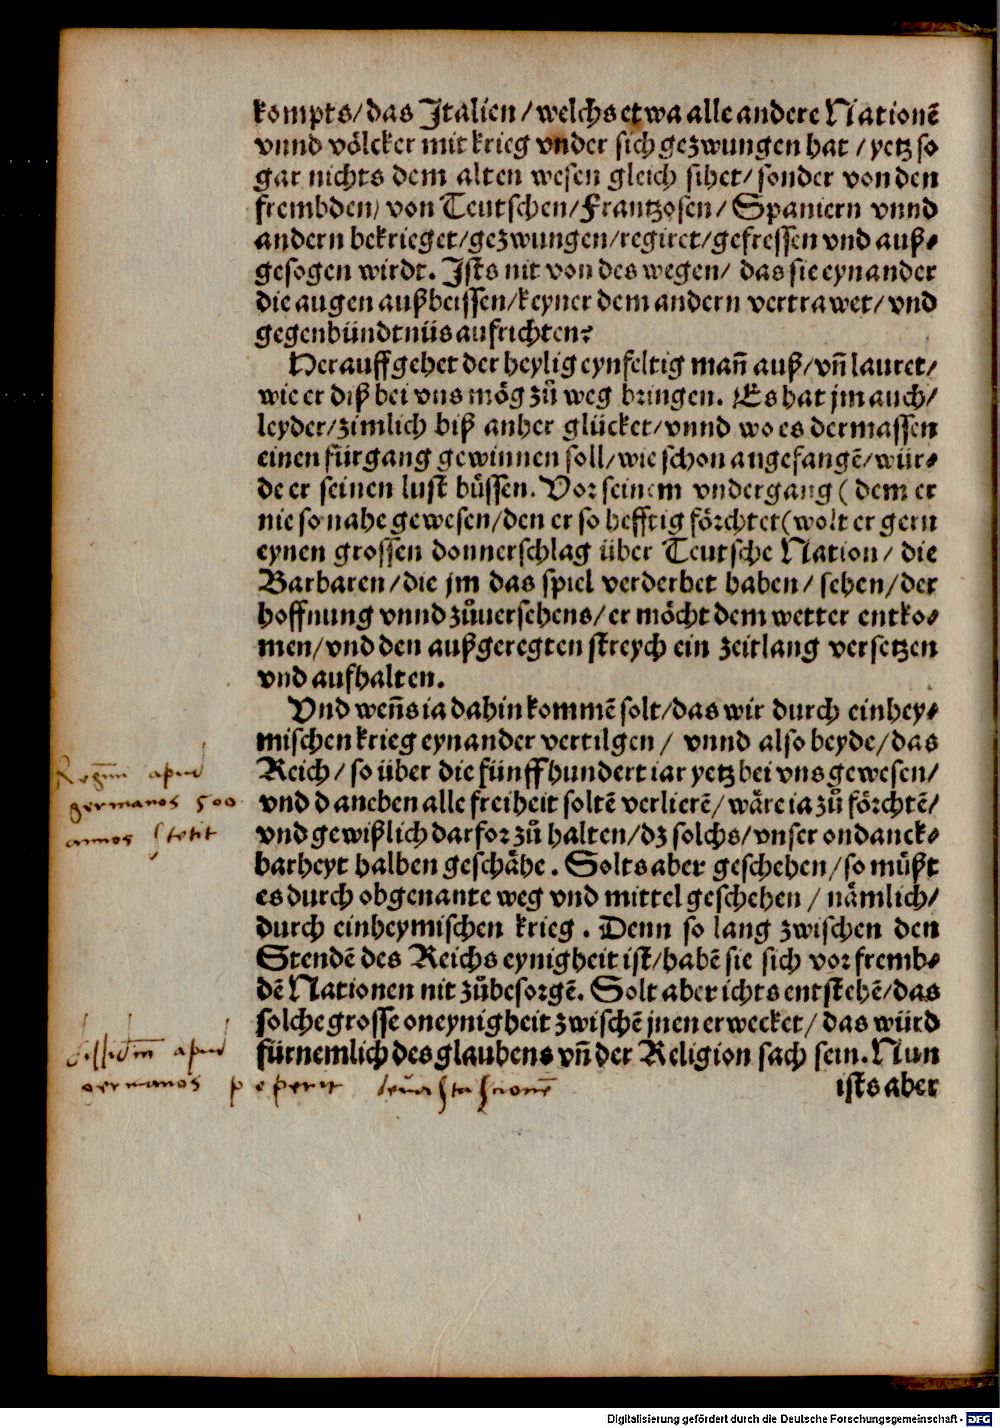 kompts/das Italien/welchs etwa alle andere Nationē
vnnd völcker mit krieg vnder sich gezwungen hat/yetz so
gar nichts dem alten wesen gleich sihet/sonder von den
frembden/von Teutschen/Frantzosen/Spaniern vnnd
andern bekrieget/gezwungen/regiret/gefressen vnd auß⸗
gesogen wirdt. Ists nit von des wegen/ das sie eynander
die augen außbeissen/keyner dem andern vertrawet/vnd
gegenbündtnüs aufrichten?
Herauff gehet der heylig eynfeltig mañ auß/vñ lauret/
wie er diß bei vns mög zů weg bringen. Es hat jm auch/
leyder/zimlich biß anher glücket/vnnd wo es dermassen
einen fürgang gewinnen soll/wie schon angefangē/wür⸗
de er seinen lust büssen. Vor seinem vndergang ( dem er
nie so nahe gewesen/den er so hefftig förchtet( wolt er gern
eynen grossen donnerschlag über Teutsche Nation/ die
Barbaren/die jm das spiel verderbet haben/ sehen/der
hoffnung vnnd zůuersehens/er möcht dem wetter entko⸗
men/vnd den außgeregten streych ein zeitlang versetzen
vnd aufhalten.
Vnd weñs ia dahin kommē solt/das wir durch einhey⸗
mischen krieg eynander vertilgen/ vnnd also beyde/das
Reich/so über die fünffhundert iar yetz bei vns gewesen/
vnd daneben alle freiheit soltē verlierē/wäre ia zů förchtē/
vnd gewißlich darfor zů halten/dz solchs/vnser ondanck⸗
barheyt halben geschähe. Solts aber geschehen/so müßt
es durch obgenante weg vnd mittel geschehen/ nämlich/
durch einheymischen krieg. Denn so lang zwischen den
Stendē des Reichs eynigheit ist/habē sie sich vor fremb⸗
dē Nationen nit zůbesorgē. Solt aber ichts entstehē/das
solche grosse oneynigheit zwischē jnen erwecket/das würd
fürnemlich des glaubens vñ der Religion sach sein. Nun
ists aber
Regnū apud
germanos 500
annos stetit
dissidiū apud
germanos peperit devastationē
Digitalisierung gefördert durch die Deutsche Forschungsgemeinschaft - DFG